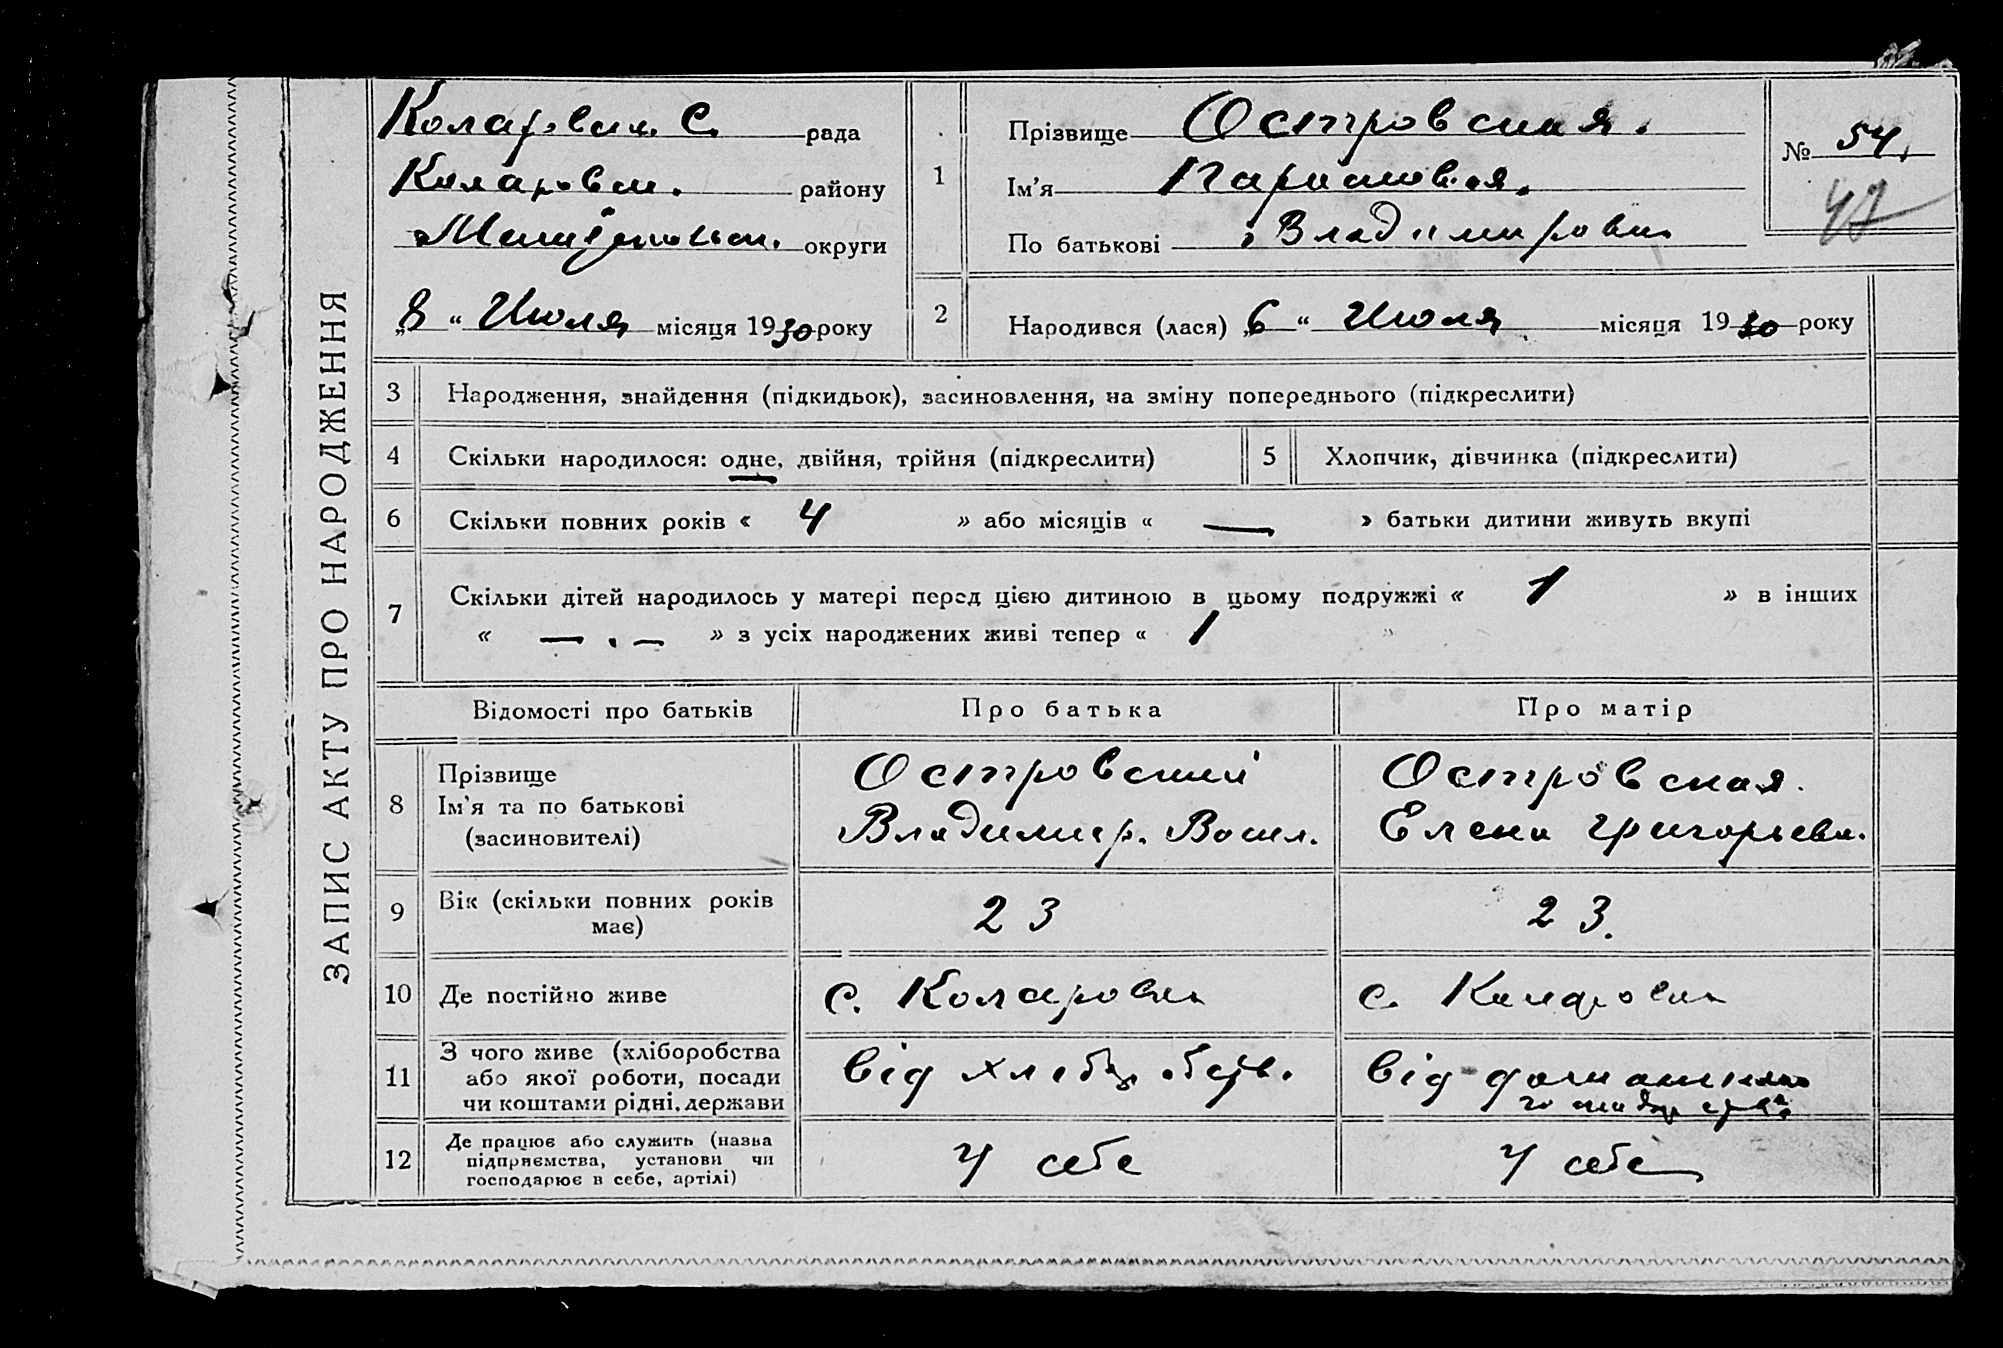 ЗАПИС АКТУ ПРО НАРОДЖЕННЯ
Коларовск. С. рада
Коларовск. району
округи
„8“ Июля місяця 1930 року
1
Прізвище Островская.
Ім'я
По батькові Владимировн
№ 54.
47
2
Народився (лася) „6“ Июля місяця 1930 року
3 Народження, знайдення (підкидьок), засиновлення, на зміну попереднього (підкреслити)
4 Скільки народилося: одне, двійня, трійня (підкреслити)
5 Хлопчик, дівчинка (підкреслити)
6 Скільки повних років « 4 » або місяців « — » батьки дитини живуть вкупі
7 Скільки дітей народилось у матері перед цією дитиною в цьому подружжі « 1 » в інших
« — . — » з усіх народжених живі тепер « 1 »
Відомості про батьків Про батька Про матір
8
Прізвище
Ім'я та по батькові
(засиновителі)
Островский
Владимир. Васил.
Островская.
Елена Григорьевн.
9
Вік (скільки повних років
має)
23
23.
10 Де постійно живе с. Коларовк с. Коларовк
11
З чого живе (хліборобства
або якої роботи, посади
чи коштами рідні, держави
від
від
12
Де працює або служить (назва
підприємства, установи чи
господарює в себе, артілі)
У себе
У себе